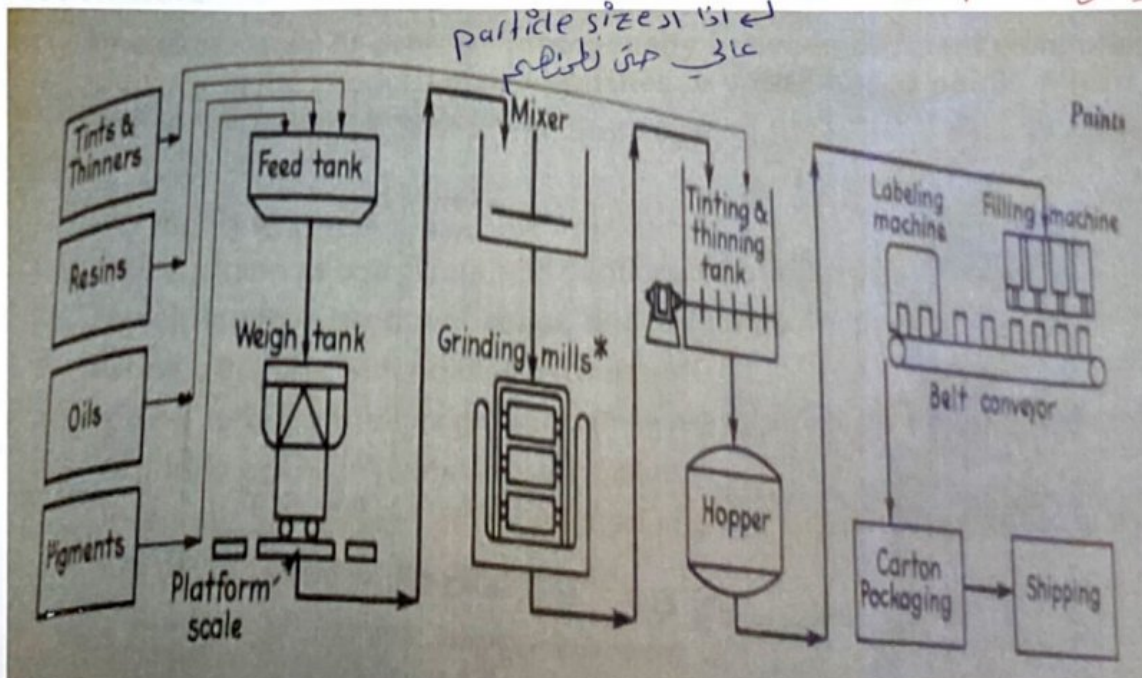 ← اذا ال particle size
عالي حتى نطحنهم
Paints
Tints &
Thinners
Resins
Oils
Pigments
Feed tank
Weigh tank
Platform
scale
Mixer
Grinding mills*
Tinting &
thinning
tank
Hopper
Labeling
machine
Filling machine
Belt conveyor
Carton
Packaging
Shipping